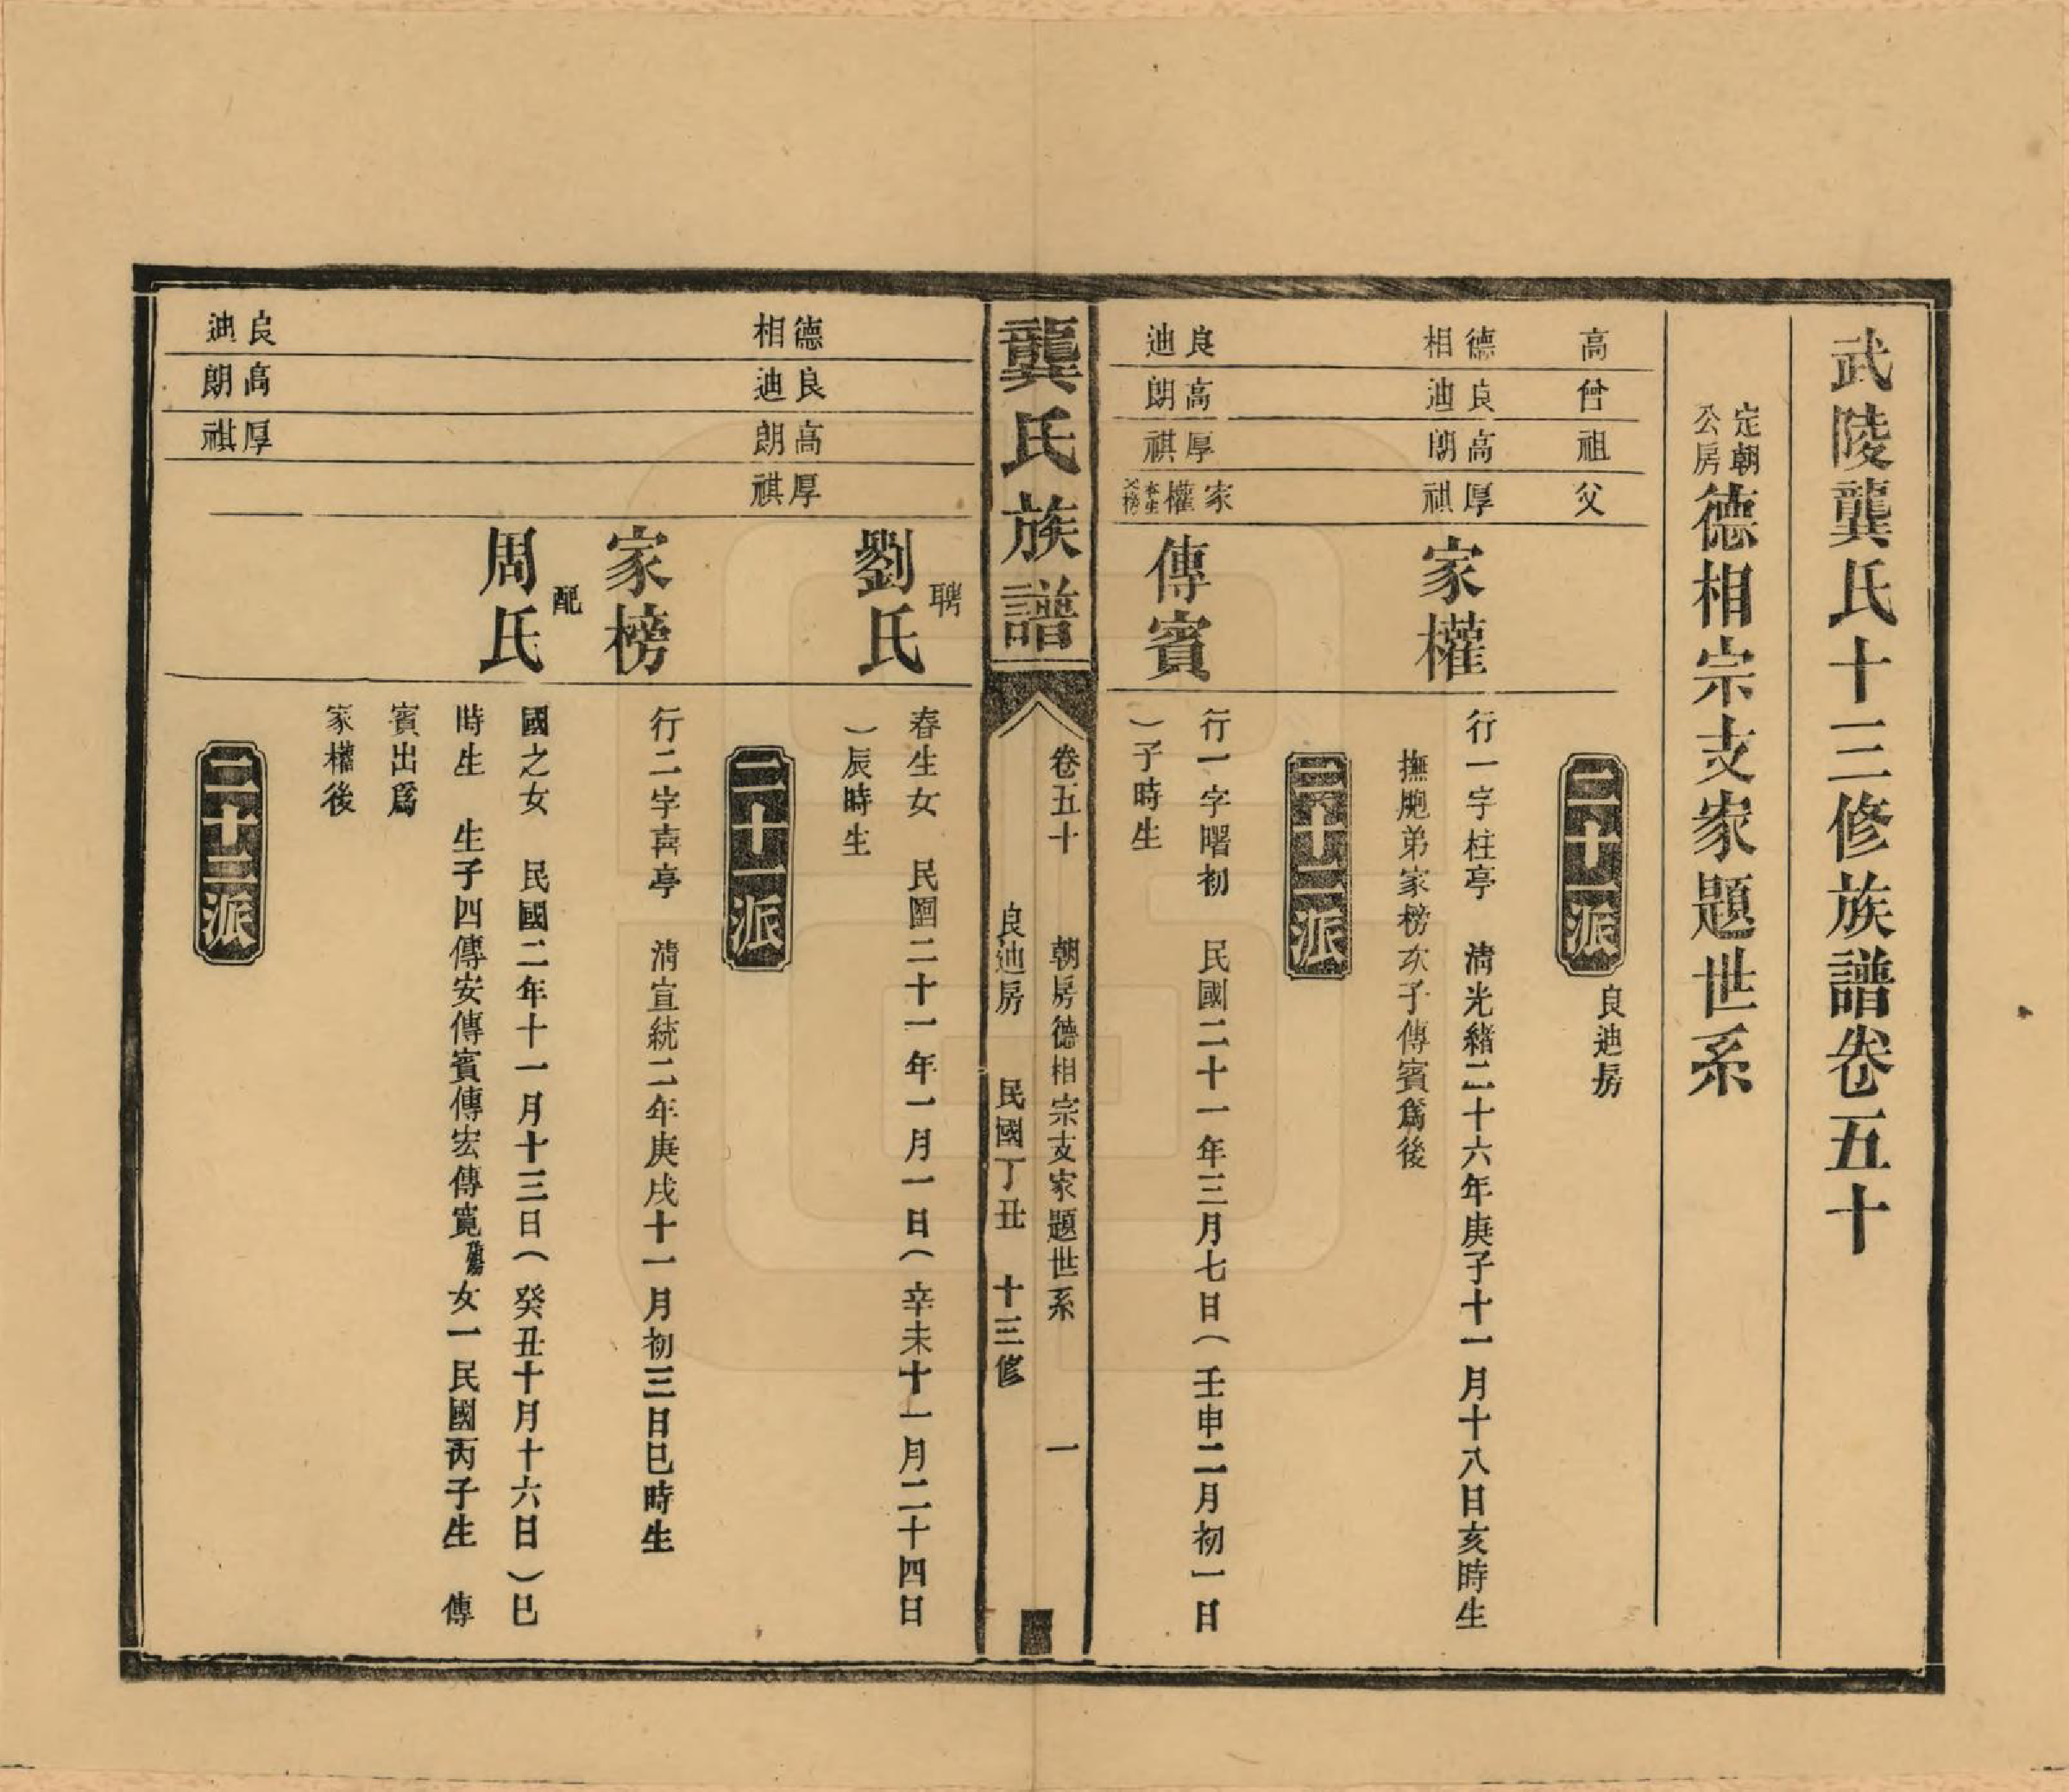 武陵龔氏十三修族譜卷五十
定朝公房德相宗支家題世系
高
曾
祖
父
二十一派
良迪房
德相
良迪
高朗
厚祺
家權
行一字柱亭 清光緒二十六年庚子十一月十八日亥時生
撫胞弟家榜次子傳賓爲後
二十二派
良迪
高朗
厚祺
家權本生父榜
傳賓
行一字曙初 民國二十一年三月七日(壬申二月初一日
)子時生
龔氏族譜
卷五十 朝房德相宗支家題世系 一
良迪房 民國丁丑 十三修
聘
劉氏
春生女 民國二十一年一月一日(辛未十一月二十四日
)辰時生
二十一派
德相
良迪
高朗
厚祺
家榜
行二字喜亭 清宣統二年庚戌十一月初三日巳時生
配
周氏
國之女 民國二年十一月十三日(癸丑十月十六日)巳
時生 生子四傳安傳賓傳宏傳寬女一民國丙子生 傳
賓出爲
家權後
二十二派
良迪
高朗
厚祺